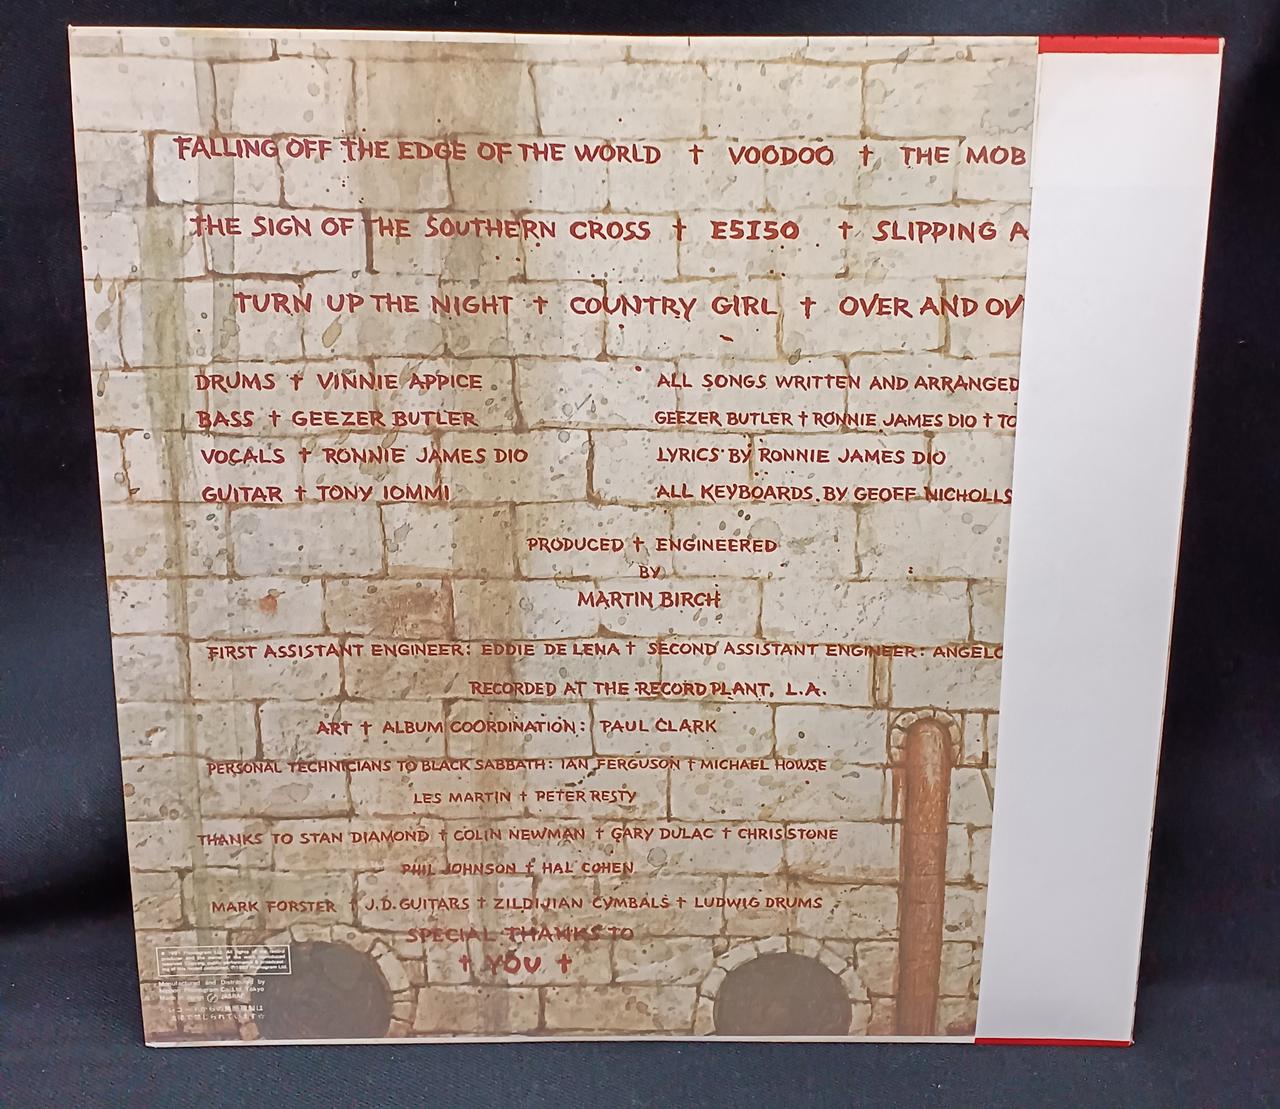 FALLING OFF THE EDGE OF THE WORLD † VOODOO † THE MOB
THE SIGN OF THE SOUTHERN CROSS † E5150 † SLIPPING A
TURN UP THE NIGHT † COUNTRY GIRL † OVER AND OV
DRUMS † VINNIE APPICE
BASS † GEEZER BUTLER
VOCALS † RONNIE JAMES DIO
GUITAR † TONY IOMMI
ALL SONGS WRITTEN AND ARRANGED
GEEZER BUTLER † RONNIE JAMES DIO † TO
LYRICS BY RONNIE JAMES DIO
ALL KEYBOARDS BY GEOFF NICHOLLS
PRODUCED † ENGINEERED
BY
MARTIN BIRCH
FIRST ASSISTANT ENGINEER: EDDIE DE LENA † SECOND ASSISTANT ENGINEER: ANGELO
RECORDED AT THE RECORD PLANT, L.A.
ART † ALBUM COORDINATION: PAUL CLARK
PERSONAL TECHNICIANS TO BLACK SABBATH: IAN FERGUSON † MICHAEL HOWSE
LES MARTIN † PETER RESTY
THANKS TO STAN DIAMOND † COLIN NEWMAN † GARY DULAC † CHRIS STONE
PHIL JOHNSON † HAL COHEN
MARK FORSTER † J.D. GUITARS † ZILDIJIAN CYMBALS † LUDWIG DRUMS
SPECIAL THANKS TO
† YOU †
Manufactured and Distributed by
Nippon Phonogram Co., Ltd. Tokyo
Made in Japan Ⓟ JASRAC